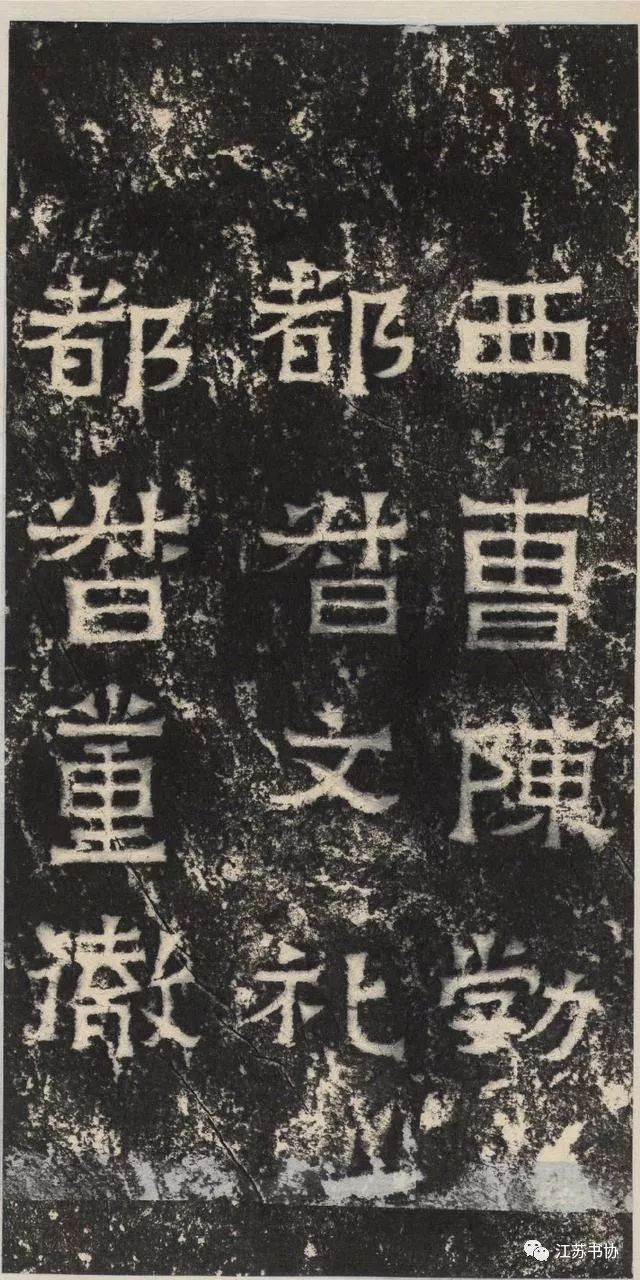 西曹陳勃
都督文礼
都督董徹
江苏书协